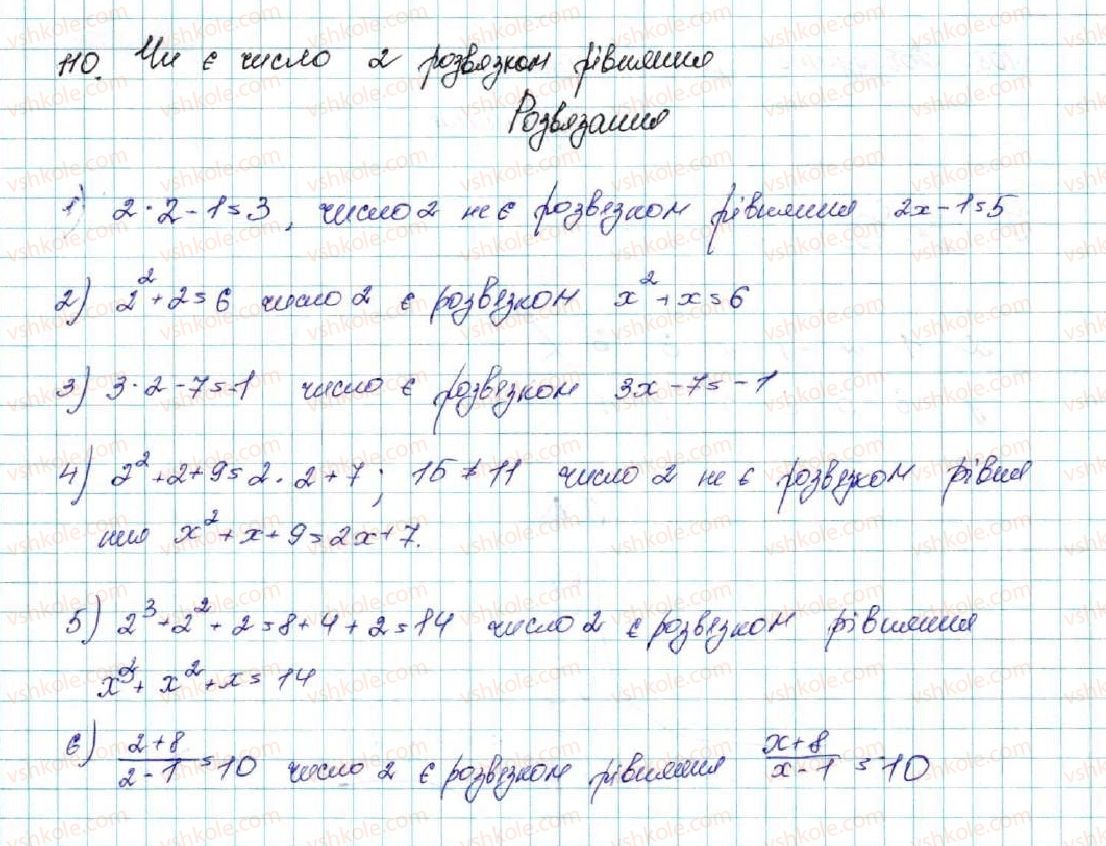 110. Чи є число 2 розвязком рівняння
Розвязання
1) 2·2-1=3, число 2 не є розвязком рівняння 2x-1=5
2) 2²+2=6 число 2 є розвязком x²+x=6
3) 3·2-7=-1 число є розвязком 3x-7=-1
4) 2²+2+9=2·2+7; 15≠11 число 2 не є розвязком рівня
ння x²+x+9=2x+7.
5) 2³+2²+2=8+4+2=14 число 2 є розвязком рівняння
x³+x²+x=14
6) (2+8)/(2-1)=10 число 2 є розвязком рівняння (x+8)/(x-1)=10